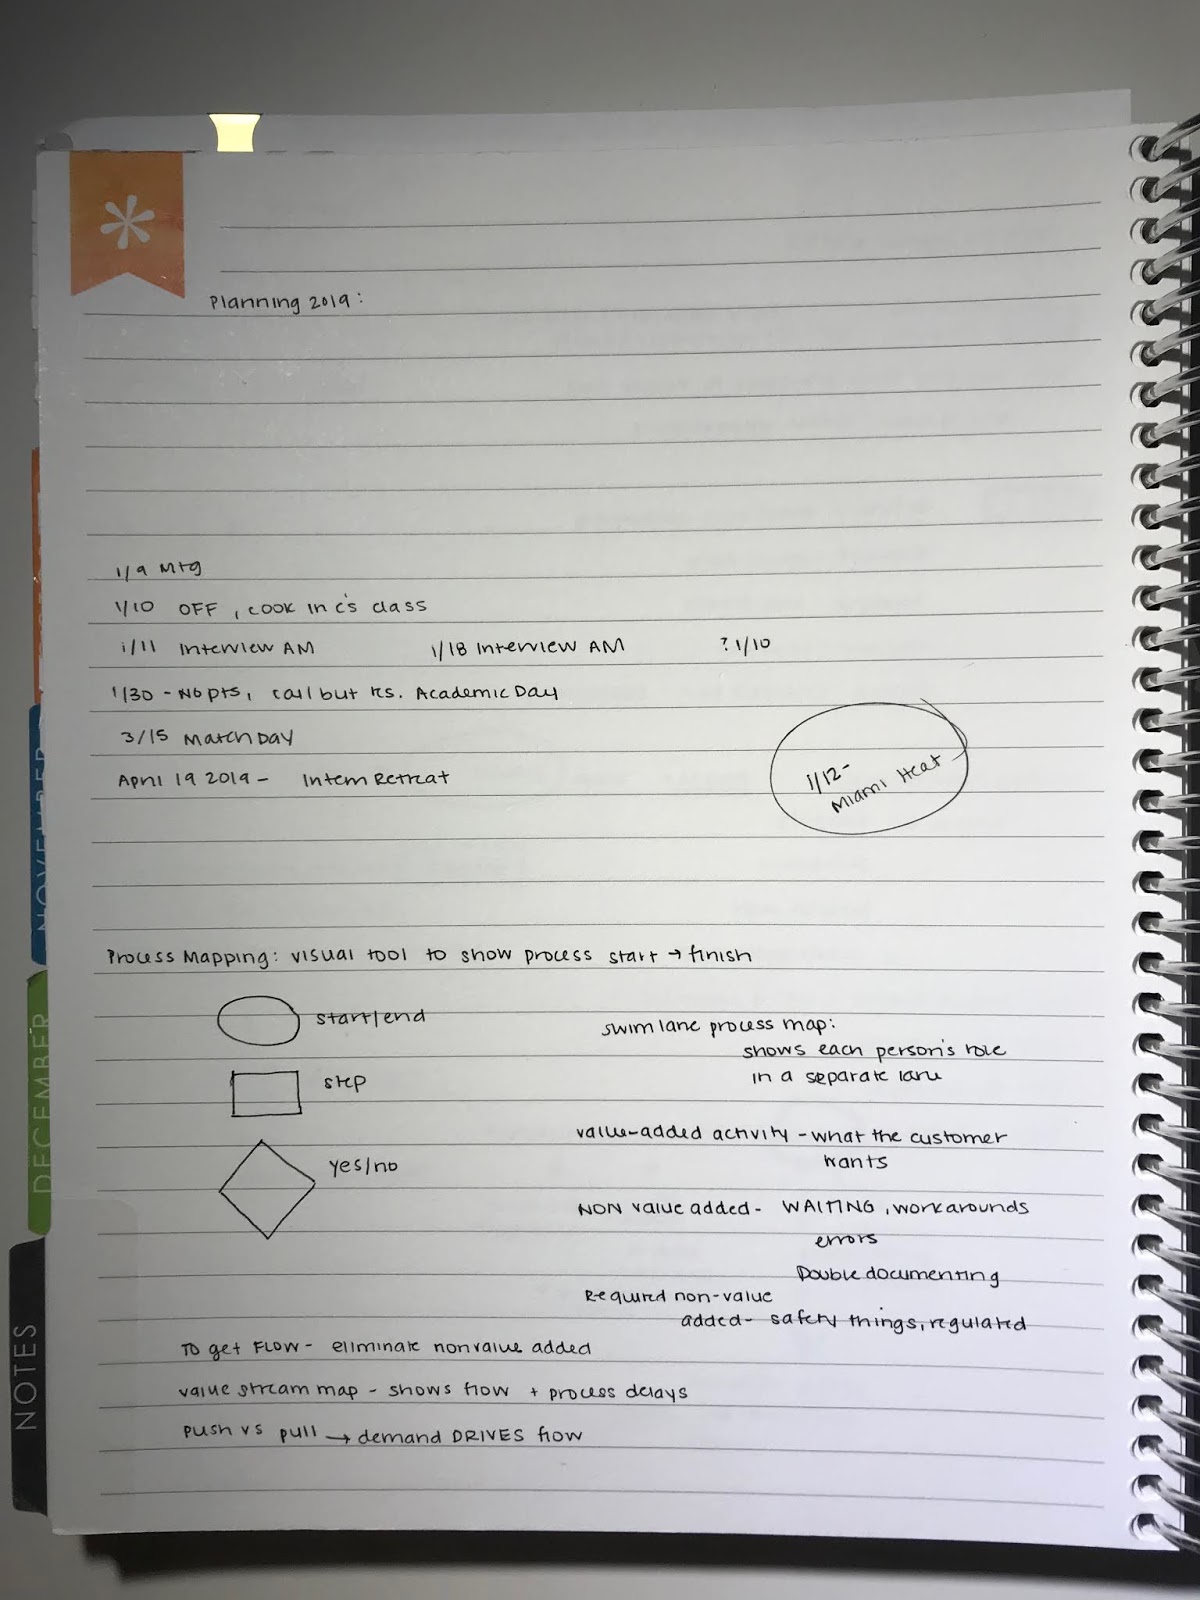 *
Planning 2019:
1/9 Mtg
1/10 OFF, cook in C's class
1/11 Interview AM 1/18 Interview AM ? 1/10
1/30 - No pts, call but res. Academic Day
3/15 Match Day
April 19 2019 - Intern Retreat
1/12 -
Miami Heat
Process Mapping: visual tool to show process start → finish
start/end
step
yes/no
swim lane process map:
shows each person's role
in a separate lane
value-added activity - what the customer
wants
NON value added - WAITING, workarounds
errors
Double documenting
Required non-value
added - safety things, regulated
To get FLOW - eliminate nonvalue added
value stream map - shows flow + process delays
push vs pull → demand DRIVES flow
NOVEMBER
DECEMBER
NOTES